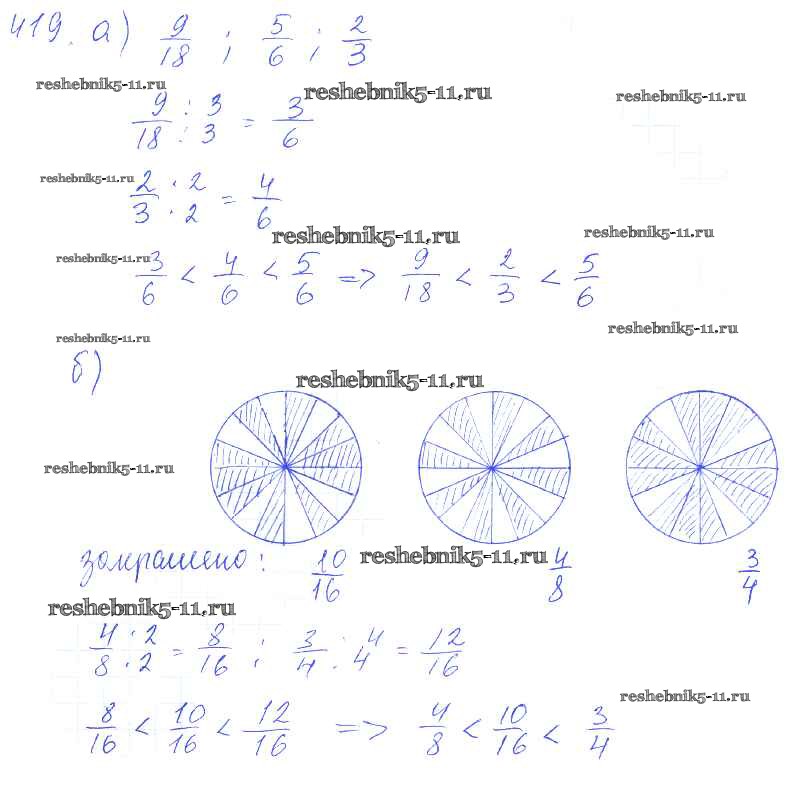 419. а) 9/18 ; 5/6 ; 2/3
reshebnik5-11.ru reshebnik5-11.ru reshebnik5-11.ru
9/18 : 3/3 = 3/6
reshebnik5-11.ru
2/3 · 2/2 = 4/6
reshebnik5-11.ru reshebnik5-11.ru
reshebnik5-11.ru
3/6 < 4/6 < 5/6 => 9/18 < 2/3 < 5/6
reshebnik5-11.ru reshebnik5-11.ru
б)
reshebnik5-11.ru
reshebnik5-11.ru
закрашено: 10/16 reshebnik5-11.ru 4/8 3/4
reshebnik5-11.ru
4/8 · 2/2 = 8/16 ; 3/4 : 4/4 = 12/16
reshebnik5-11.ru
8/16 < 10/16 < 12/16 => 4/8 < 10/16 < 3/4